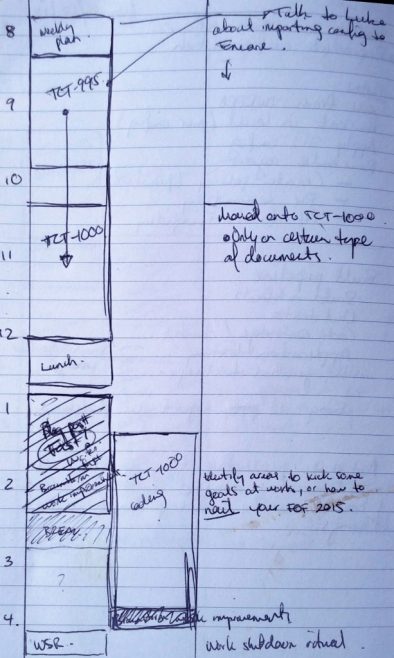 8
weekly
plan.
Talk to Luke
about importing config to
TCT-995
9
10
moved onto TCT-1000
• Only on certain type
of documents.
TCT-1000
11
12
Lunch.
1
Blog post
TCT-1000
coding
2
Identify areas to kick some
goals at work, or how to
nail your FOF 2015.
BREAK
3
?
4.
improvement
WSR.
Work shutdown ritual.